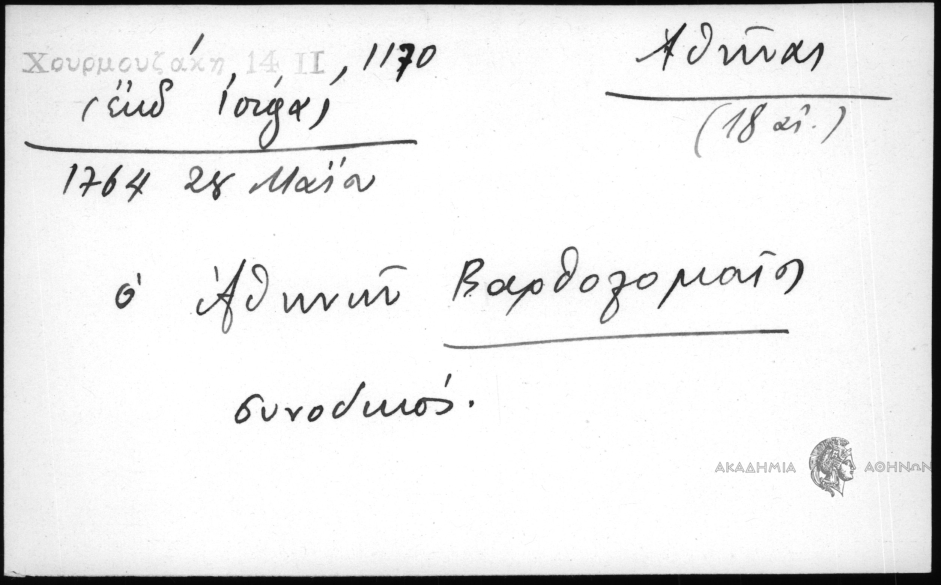 Χουρμουζάκη 14 II, 1170
Ἀθῆναι
(18 αἰ.)
1764 28 Μαΐου
ὁ Ἀθηνῶν Βαρθολομαῖος
συνοδικός.
ΑΚΑΔΗΜΙΑ ΑΘΗΝΩΝ